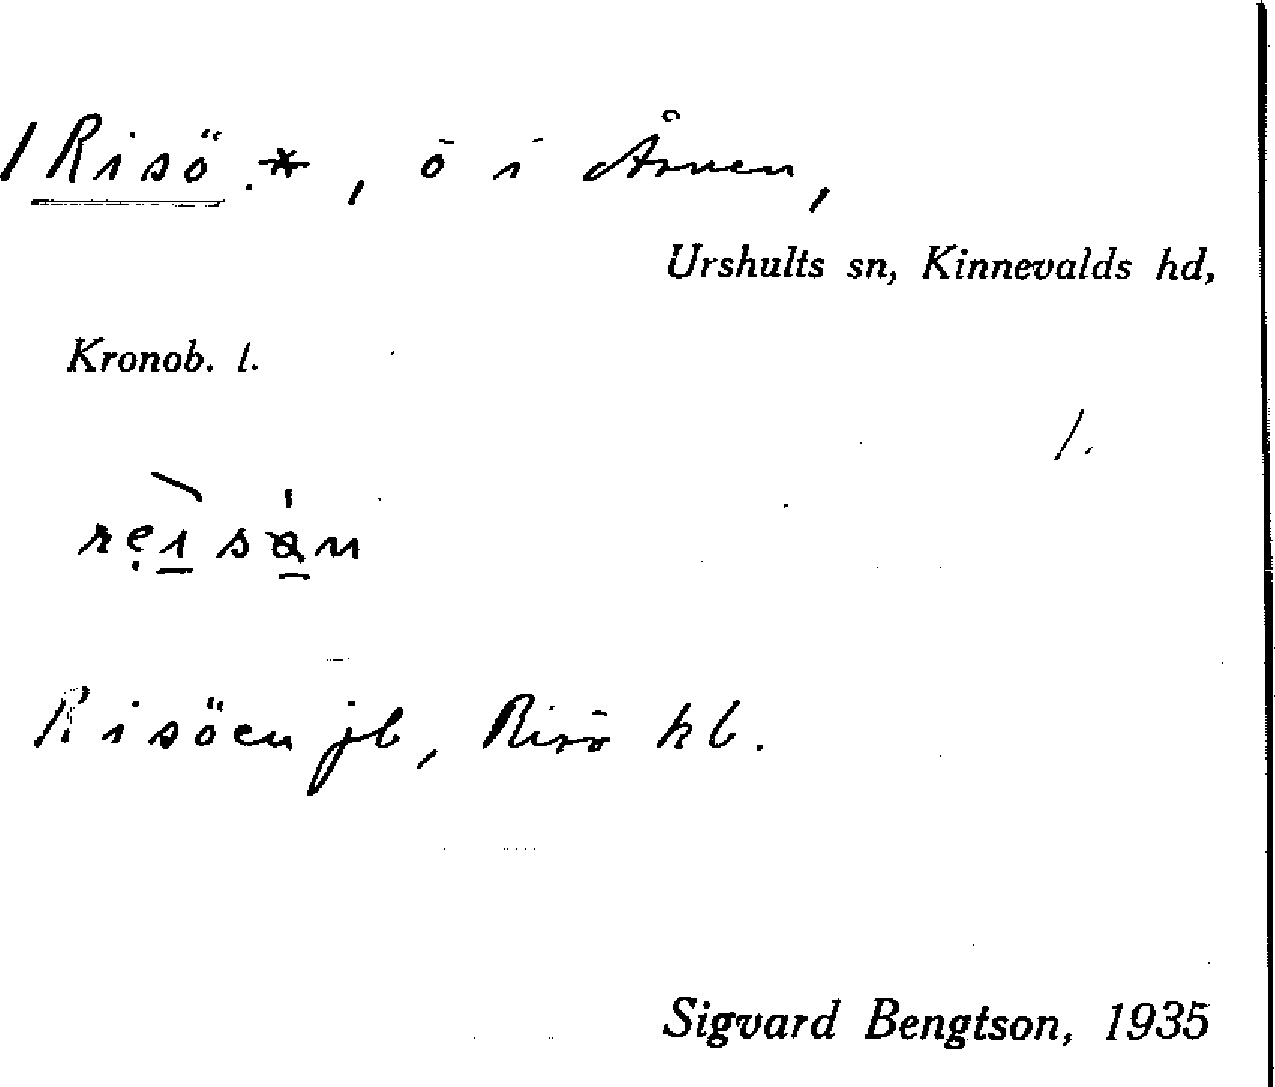 / Risö *, ö i Åsnen,
Urshults sn, Kinnevalds hd,
Kronob. l.
1.
Risöen jb, Risö kb.
Sigvard Bengtson, 1935